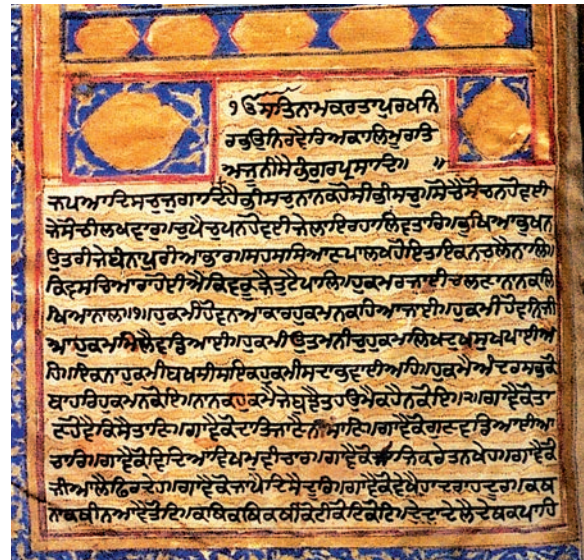 ੧ੴਸਤਿਨਾਮਕਰਤਾਪੁਰਖਨਿ
ਰਭਉਨਿਰਵੈਰਿਅਕਾਲਿਮੂਰਤਿ
ਅਜੂਨੀਸੈਭੰਗੁਰਪ੍ਰਸਾਦਿ॥ ॥
ਜਪਆਦਿਸਚੁਜੁਗਾਦਿਹੈਭੀਸਚਨਾਨਕਹੋਸੀਭੀਸਚੁ॥ਸੋਚੈਸੋਚਨਹੋਵਈ
ਜੇਸੋਚੀਲਖਵਾਰ॥ਚੁਪੈਚੁਪਨਹੋਵਈਜੇਲਾਇਰਹਾਲਿਵਤਾਰ॥ਭੁਖਿਆਭੁਖਨ
ਉਤਰੀਜੇਬੰਨਾਪੁਰੀਆਭਾਰ॥ਸਹਸਸਿਆਣਪਾਲਖਹੋਇਤਾਇਕਨਚਲੈਨਾਲਿ॥
ਕਿਵਸਚਿਆਰਾਹੋਈਐਕਿਵਕੂੜੈਤੁਟੈਪਾਲਿ॥ਹੁਕਮਰਜਾਈਚਲਣਾਨਾਨਕਲਿ
ਖਿਆਨਾਲ॥੧॥ਹੁਕਮੀਹੋਵਨਆਕਾਰਹੁਕਮਨਕਹਿਆਜਾਈ॥ਹੁਕਮੀਹੋਵਨਿਜੀ
ਆਹੁਕਮਮਿਲੈਵਡਿਆਈ॥ਹੁਕਮੀਉਤਮਨੀਚੁਹੁਕਮਲਿਖਦੁਖਸੁਖਪਾਈਅ
ਹਿ॥ਇਕਨਾਹੁਕਮੀਬਖਸੀਸਇਕਹੁਕਮੀਸਦਾਭਵਾਈਅਹਿ॥ਹੁਕਮੈਅੰਦਰਸਭਕੋ
ਬਾਹਰਿਹੁਕਮਨਕੋਇ॥ਨਾਨਕਹੁਕਮੈਜੇਬੁਝੈਤਹਉਮੈਕਹੈਨਕੋਇ॥੨॥ਗਾਵੈਕੋਤਾ
ਣਹੋਵੈਕਿਸੈਤਾਣਿ॥ਗਾਵੈਕੋਦਾਤਿਜਾਣੈਨੀਸਾਣਿ॥ਗਾਵੈਕੋਗੁਣਵਡਿਆਈਆ
ਚਾਰਿ॥ਗਾਵੈਕੋਵਿਦਿਆਵਿਖਮੁਵੀਚਾਰ॥ਗਾਵੈਕੋਸਾਜਿਕਰੇਤਨਖੇਹ॥ਗਾਵੈਕੋ
ਜੀਆਲੈਫਿਰਦੇਹ॥ਗਾਵੈਕੋਜਾਪੈਦਿਸੈਦੂਰਿ॥ਗਾਵੈਕੋਵੇਖੈਹਾਦਰਾਹਦੂਰ॥ਕਥ
ਨਾਕਥੀਨਆਵੈਤੋਟਿ॥ਕਥਿਕਥਿਕਥੀਕੋਟੀਕੋਟਿਕੋਟਿ॥ਦੇਦਾਦੇਲੈਦੇਥਕਪਾਹਿ